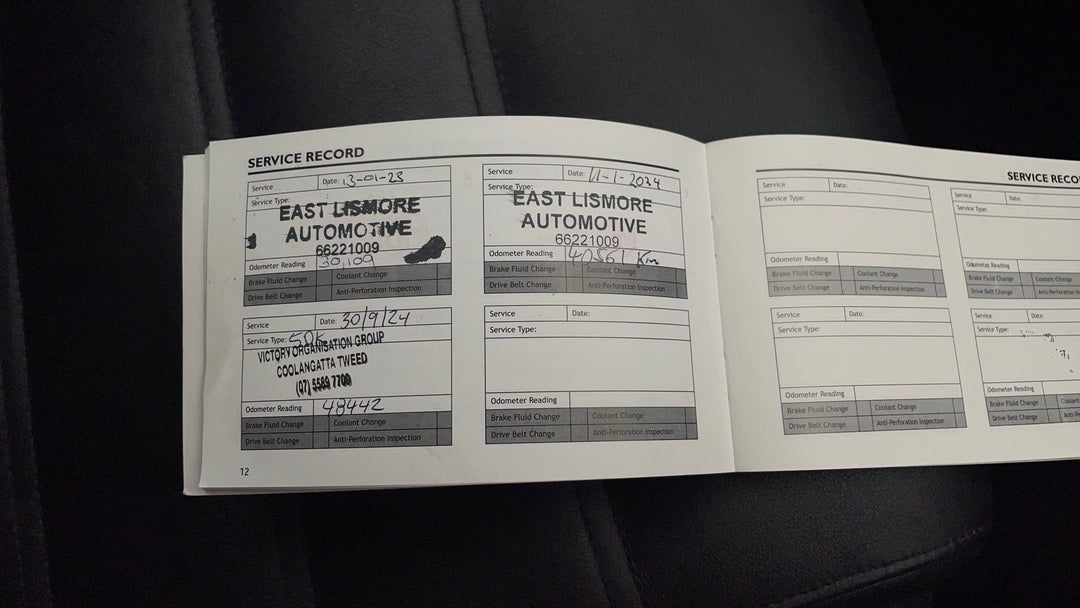 SERVICE RECORD
Service Date: 13-01-23
Service Type:
EAST LISMORE
AUTOMOTIVE
66221009
Odometer Reading 30,109
Brake Fluid Change Coolant Change
Drive Belt Change Anti-Perforation Inspection
Service Date: 11-1-2024
Service Type:
EAST LISMORE
AUTOMOTIVE
66221009
Odometer Reading 40561 Km
Brake Fluid Change Coolant Change
Drive Belt Change Anti-Perforation Inspection
Service Date: 30/9/24
Service Type: 50K
VICTORY ORGANISATION GROUP
COOLANGATTA TWEED
(07) 5569 7700
Odometer Reading 48442
Brake Fluid Change Coolant Change
Drive Belt Change Anti-Perforation Inspection
Service Date:
Service Type:
Odometer Reading
Brake Fluid Change Coolant Change
Drive Belt Change Anti-Perforation Inspection
12
SERVICE RECO
Service Date:
Service Type:
Odometer Reading
Brake Fluid Change Coolant Change
Drive Belt Change Anti-Perforation Inspection
Service Date:
Service Type:
Odometer Reading
Brake Fluid Change Coolant Change
Drive Belt Change Anti-Perforation In
Service Date:
Service Type:
Odometer Reading
Brake Fluid Change Coolant Change
Drive Belt Change Anti-Perforation Inspection
Service Date:
Service Type:
Odometer Reading
Brake Fluid Change Coolant
Drive Belt Change Anti-Per